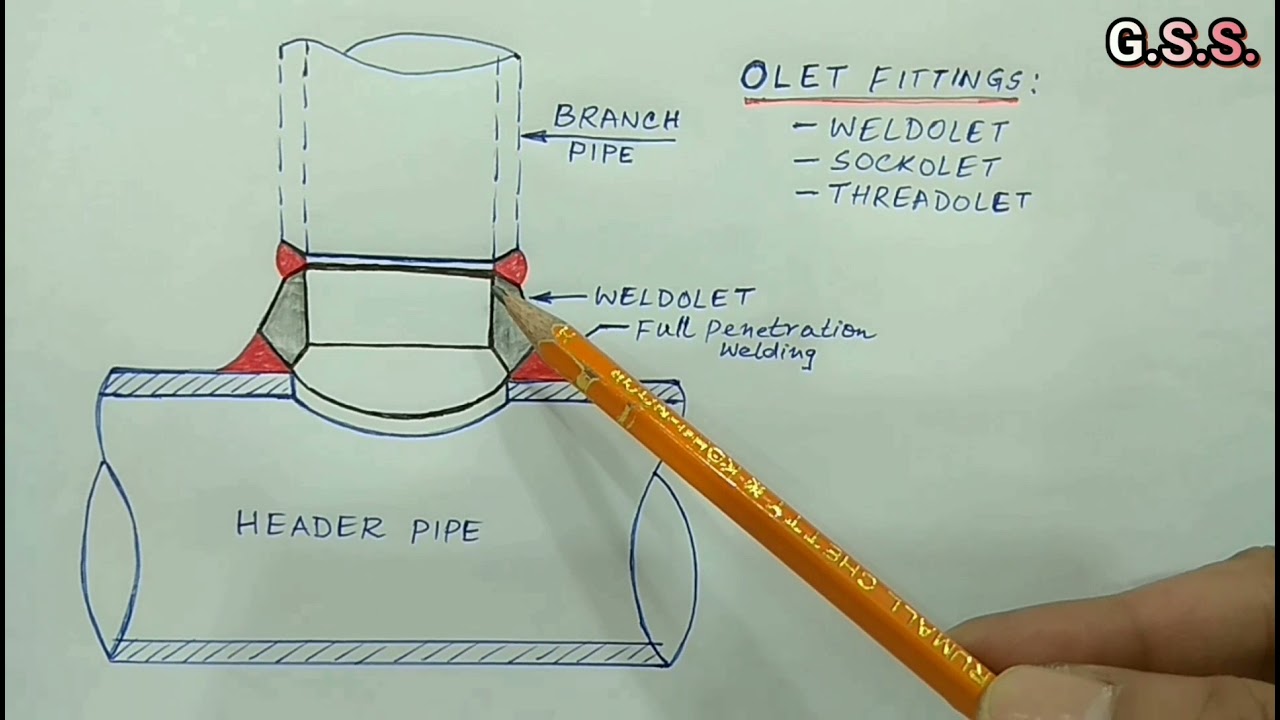 G.S.S.
OLET FITTINGS:
- WELDOLET
- SOCKOLET
- THREADOLET
BRANCH
PIPE
WELDOLET
Full Penetration
Welding
HEADER PIPE
RUMALL CHETTY K KOH-I-NOOR